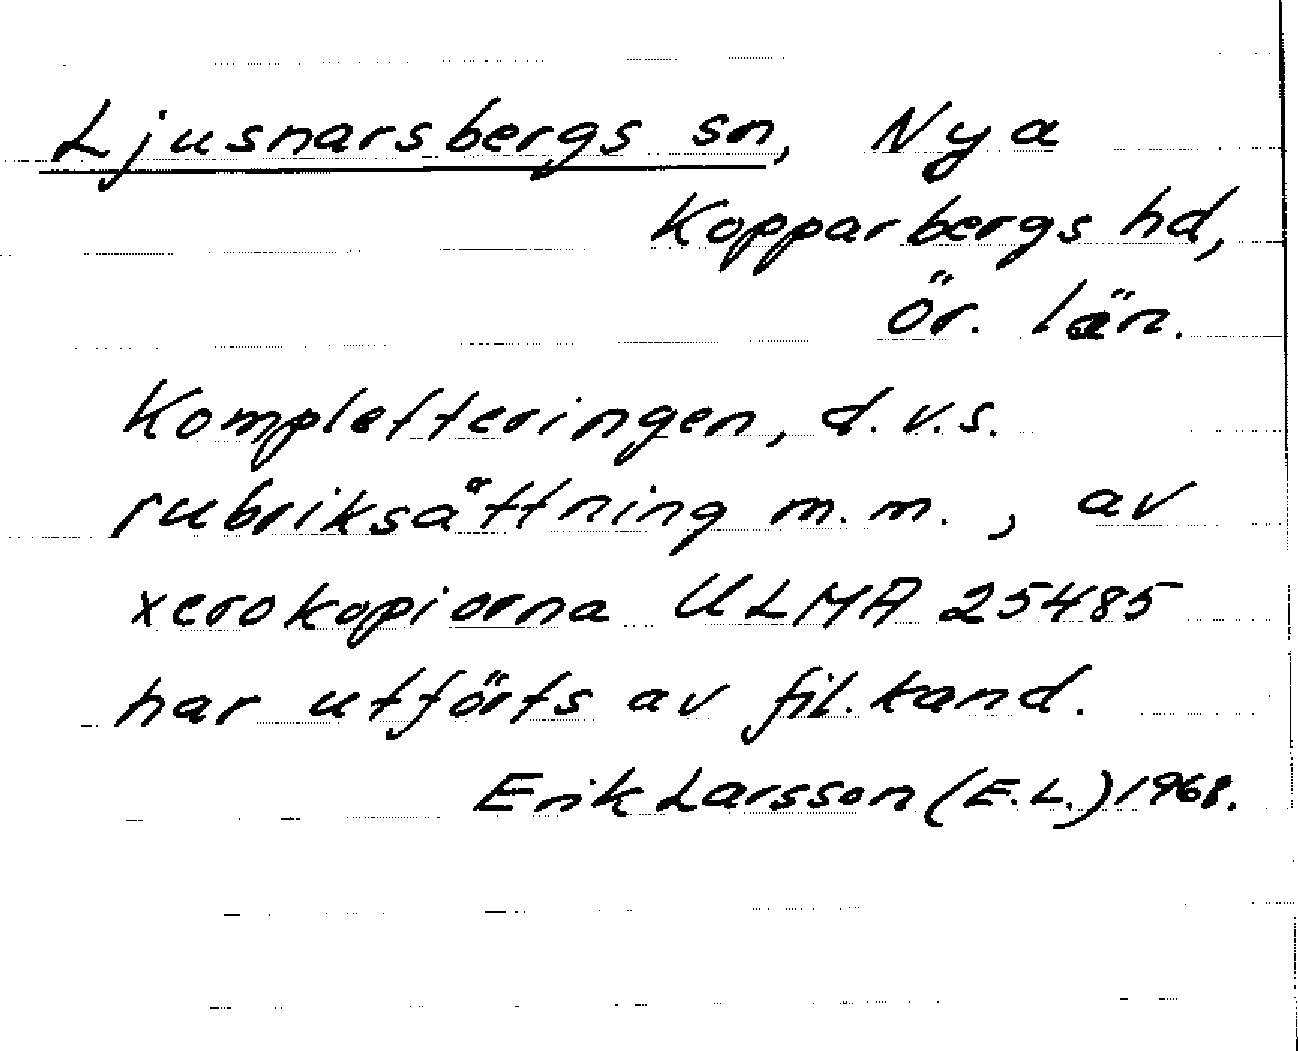 Ljusnarsbergs sn, Nya
Kopparbergs hd,
Ör. län.
Kompletteringen, d.v.s.
rubriksåttning m.m., av
xerokopiorna ULMA 25485
har utförts av fil. kand.
Erik Larsson (E.L.) 1968.